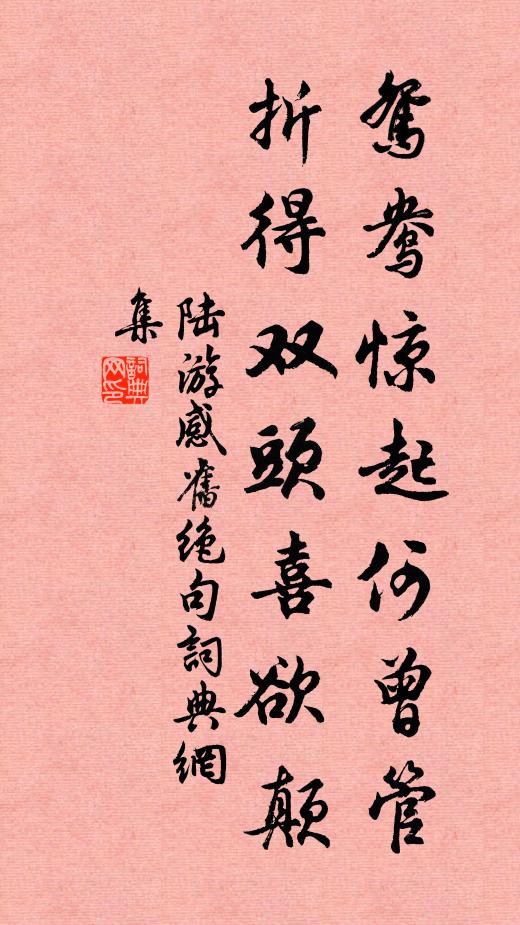 鸳鸯惊起何曾管
折得双頭喜欲颠
陆游感舊绝句詞典網
集
詞典
网印